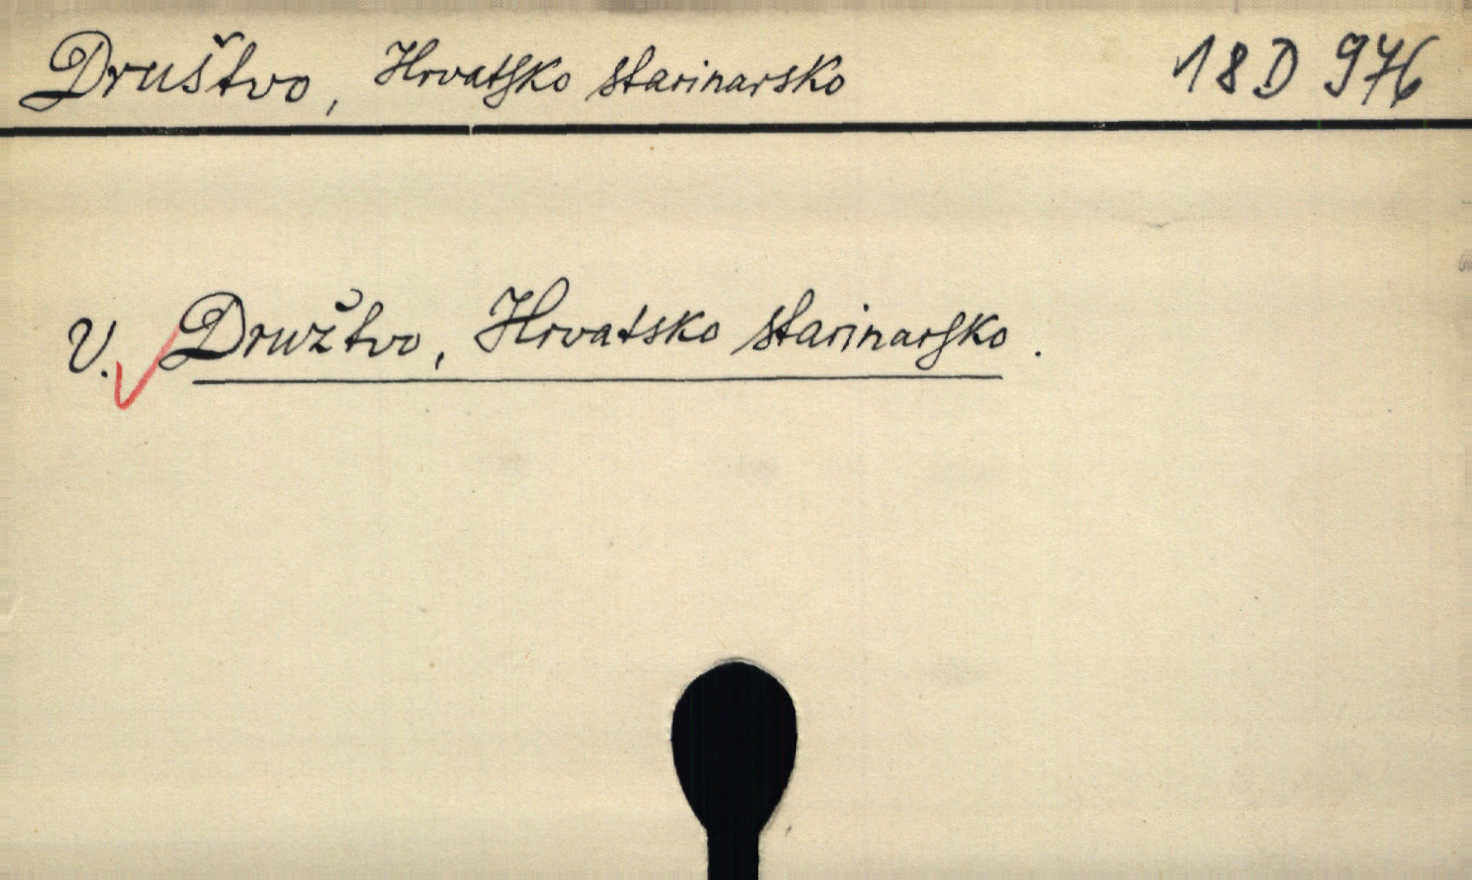 Društvo, Hrvatsko starinarsko 18 D 976
V. Družtvo, Hrvatsko starinarsko.